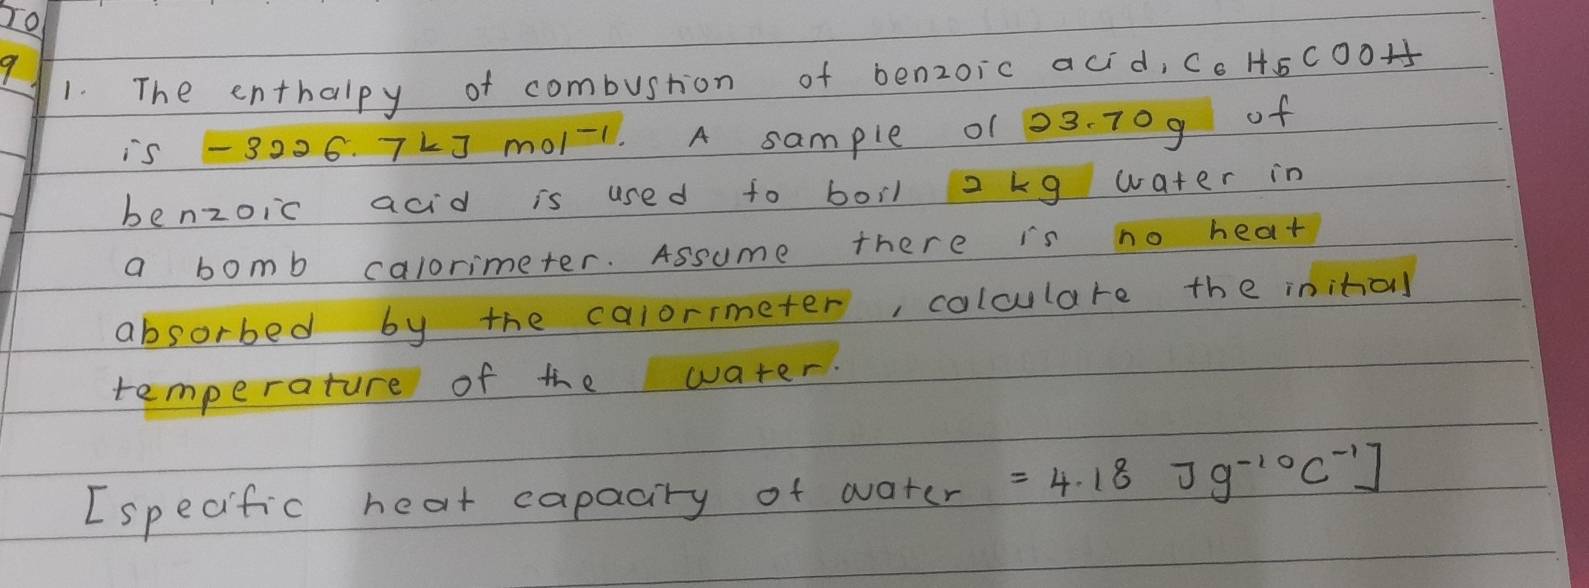 TO
9
1. The enthalpy of combustion of benzoic acid, C6H5COOH
is -3226.7 kJ mol⁻¹. A sample of 23.70g of
benzoic acid is used to boil 2 kg water in
a bomb calorimeter. Assume there is no heat
absorbed by the calorimeter, calculate the initial
temperature of the water.
[specific heat capacity of water = 4.18 J g⁻¹ °C⁻¹]